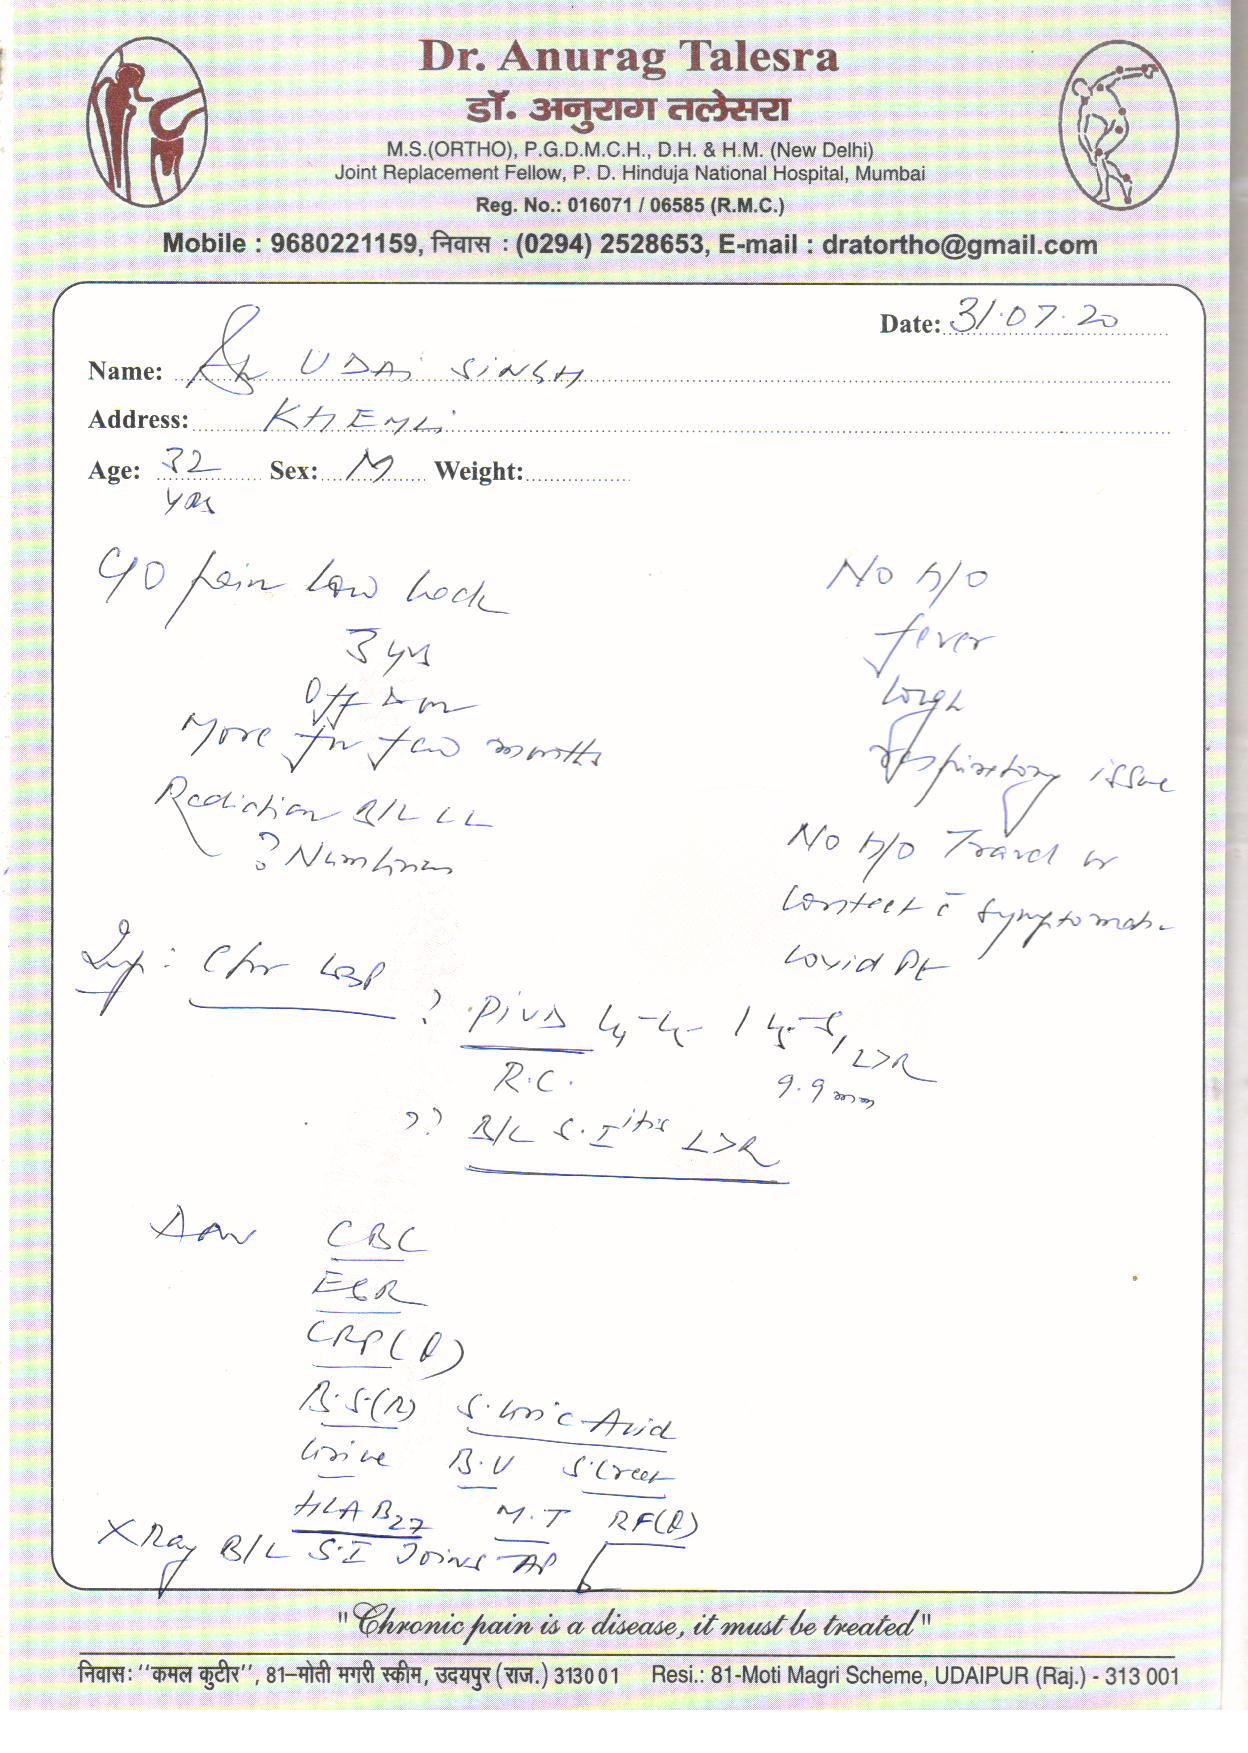 Dr. Anurag Talesra
डॉ. अनुराग तलेसरा
M.S.(ORTHO), P.G.D.M.C.H., D.H. & H.M. (New Delhi)
Joint Replacement Fellow, P. D. Hinduja National Hospital, Mumbai
Reg. No.: 016071 / 06585 (R.M.C.)
Mobile : 9680221159, निवास : (0294) 2528653, E-mail : dratortho@gmail.com
Date: 31.07.20
Name: UDAi SiNGH
Address: KHEMLi
Age: 32 Sex: M Weight:
yrs
C/O pain low back
3 yrs
Off & on
More for few months
Radiation B/L LL
? Numbness
No h/o
fever
cough
respiratory issue
No h/o Travel or
contact c̄ symptomatic
covid Pt
Imp : Chr LBP
? PiVD L4-L5 / L5-S1 L>R
R.C. 9.9mm
?? B/L S.I itis L>R
Adv CBC
ESR
CRP(Q)
B.S(R) S.Uric Acid
Urine B.U S.Creat
HLA B27 M.T RF(Q)
X Ray B/L S.I Joints AP
"Chronic pain is a disease, it must be treated"
निवास: ''कमल कुटीर'', 81–मोती मगरी स्कीम, उदयपुर (राज.) 313001 Resi.: 81-Moti Magri Scheme, UDAIPUR (Raj.) - 313 001